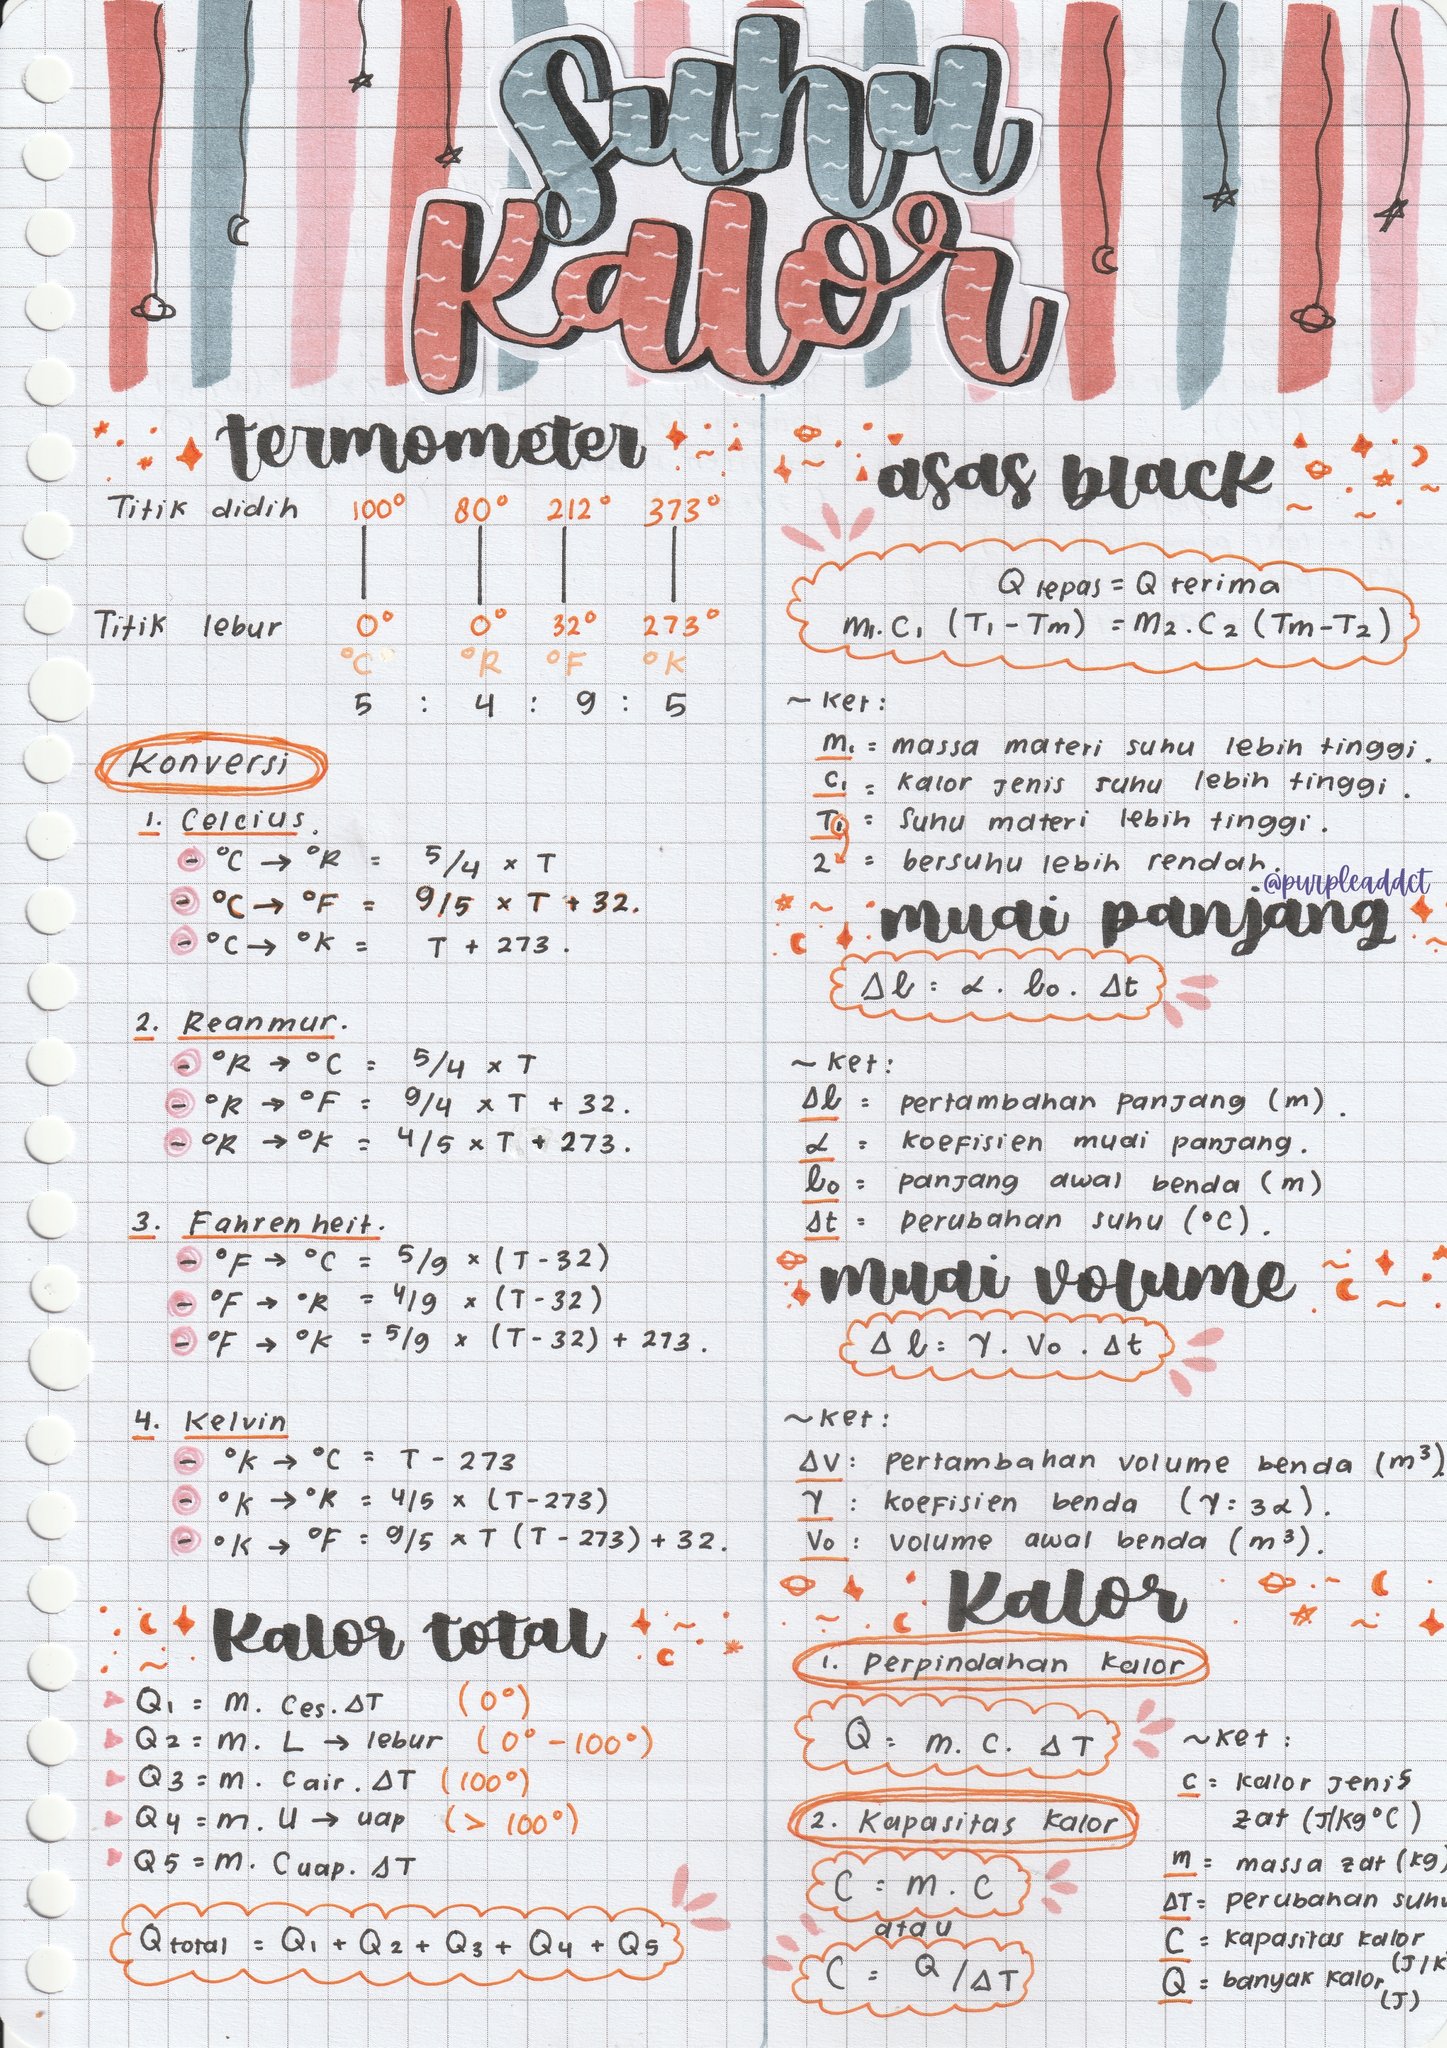 Suhu
Kalor
termometer
Titik didih 100° 80° 212° 373°
Titik lebur 0° 0° 32° 273°
°C °R °F °K
5 : 4 : 9 : 5
Konversi
1. Celcius.
- °C → °R = 5/4 × T
- °C → °F = 9/5 × T + 32.
- °C → °K = T + 273.
2. Reanmur.
- °R → °C = 5/4 × T
- °R → °F = 9/4 × T + 32.
- °R → °K = 4/5 × T + 273.
3. Fahrenheit.
- °F → °C = 5/9 × (T - 32)
- °F → °R = 4/9 × (T - 32)
- °F → °K = 5/9 × (T - 32) + 273.
4. Kelvin
- °K → °C = T - 273
- °K → °R = 4/5 × (T - 273)
- °K → °F = 9/5 × T (T - 273) + 32.
Kalor total
Q1 = m. Ces. ΔT (0°)
Q2 = m. L → lebur (0° - 100°)
Q3 = m. Cair. ΔT (100°)
Q4 = m. U → uap (> 100°)
Q5 = m. Cuap. ΔT
Q total = Q1 + Q2 + Q3 + Q4 + Q5
asas black
Q lepas = Q terima
m1. C1 (T1 - Tm) = M2. C2 (Tm - T2)
~ Ket:
m1 = massa materi suhu lebih tinggi.
C1 = kalor jenis suhu lebih tinggi.
T1 = Suhu materi lebih tinggi.
2 = bersuhu lebih rendah.
@purpleaddct
muai panjang
Δl = α. lo. Δt
~ Ket:
Δl = pertambahan panjang (m).
α = koefisien muai panjang.
lo = panjang awal benda (m)
Δt = perubahan suhu (°C).
muai volume
Δl = γ. Vo. Δt
~ Ket:
ΔV : pertambahan volume benda (m³)
γ : koefisien benda (γ: 3α).
Vo : volume awal benda (m³).
Kalor
1. Perpindahan Kalor
Q = m. C. ΔT
2. Kapasitas Kalor
C = m. C
atau
C = Q / ΔT
~ Ket:
C = kalor jenis
zat (J/kg°C)
m = massa zat (kg)
ΔT = perubahan suhu
C = kapasitas kalor
(J/K
Q = banyak kalor
(J)